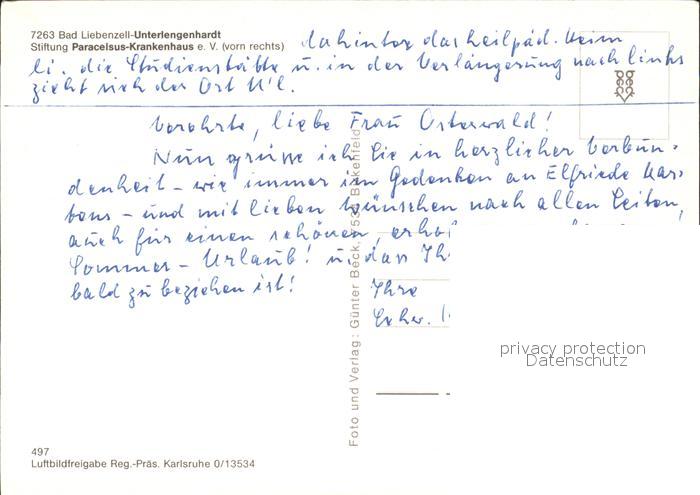 7263 Bad Liebenzell-Unterlengenhardt
Stiftung Paracelsus-Krankenhaus e. V. (vorn rechts)
dahinter das heilpäd. Heim
li. die Studienstätte u. in der Verlängerung nach links
zieht sich der Ort U'l.
Verehrte, liebe Frau Osterwald!
Nun grüsse ich Sie in herzlicher Verbun-
denheit - wie immer im Gedenken an Elfriede Kar-
tens - und mit lieben Wünschen nach allen Seiten,
auch für einen schönen, erhol
Sommer-Urlaub! u. dass Ih
bald zu beziehen ist!
Ihre
Schw.
Foto und Verlag: Günter Beck, 7534 Birkenfeld
privacy protection
Datenschutz
497
Luftbildfreigabe Reg.-Präs. Karlsruhe 0/13534